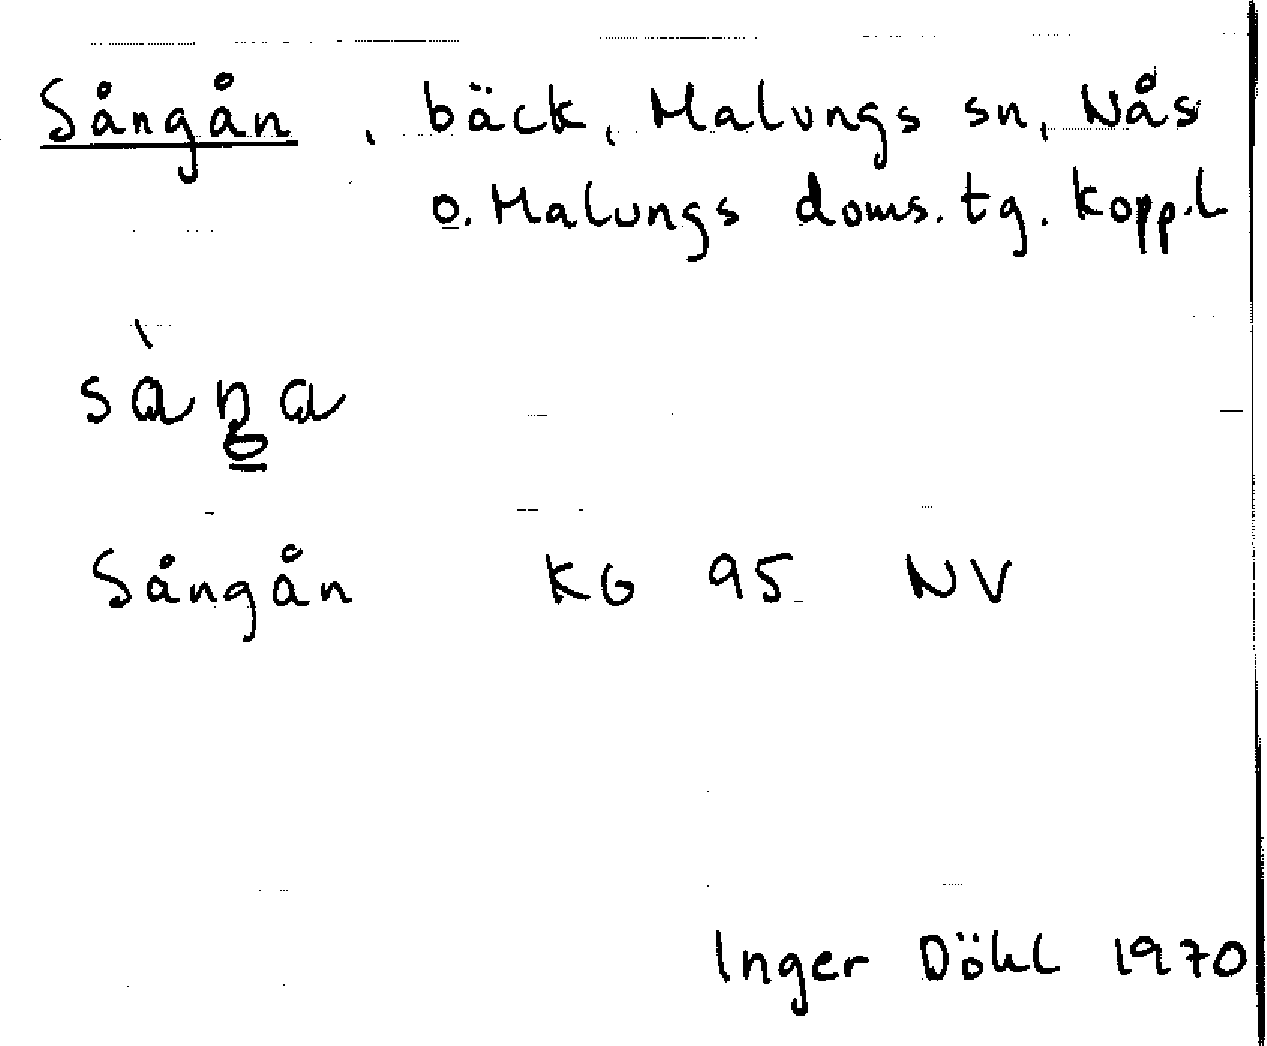 Sångån, bäck, Malungs sn, Nås
o. Malungs doms. tg. Kopp.l
Sångån KG 95 NV
Inger Döhl 1970